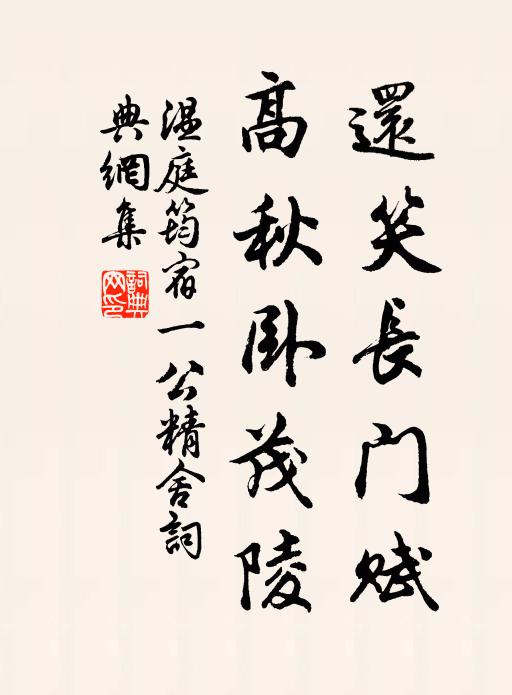 還笑長門賦
高秋卧茂陵
温庭筠宿一公精舍詞
典網集
詞典網印